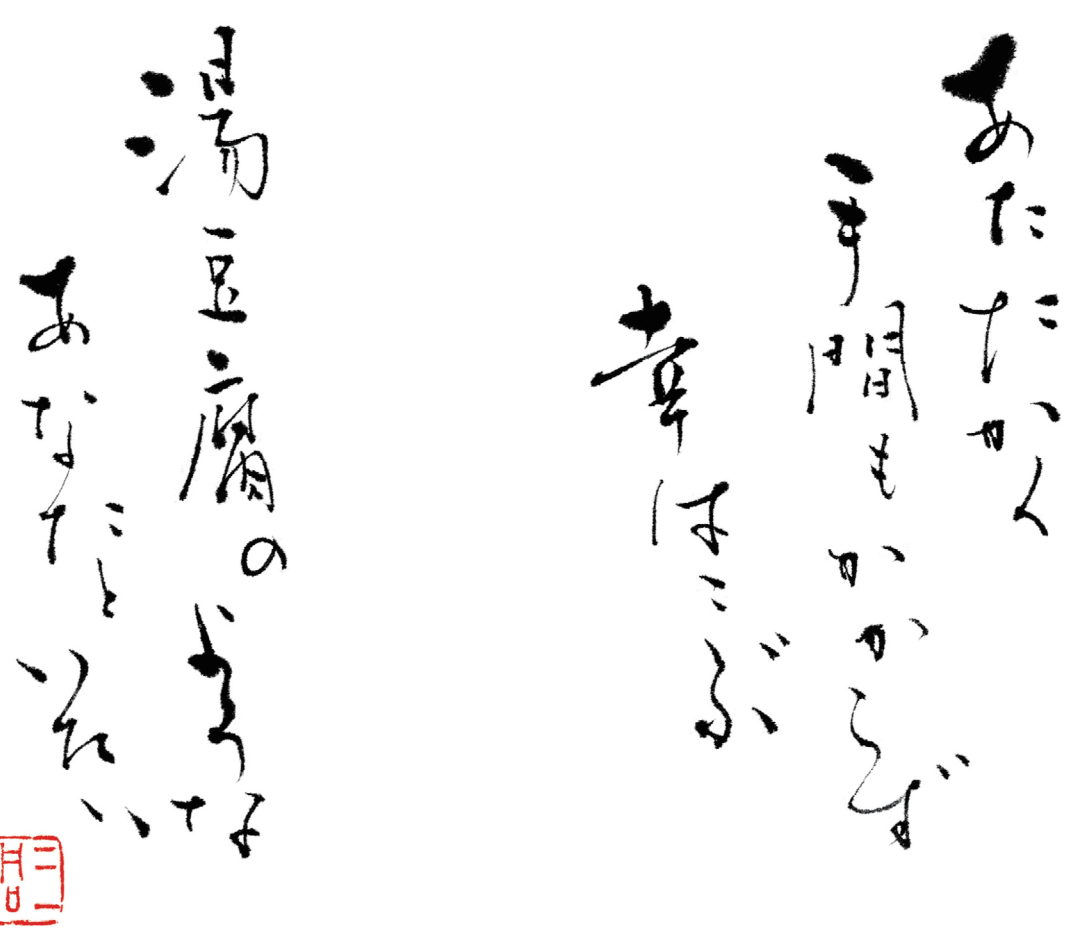 あたたかく
手間もかからず
幸はこぶ
湯豆腐のような
あなたといたい